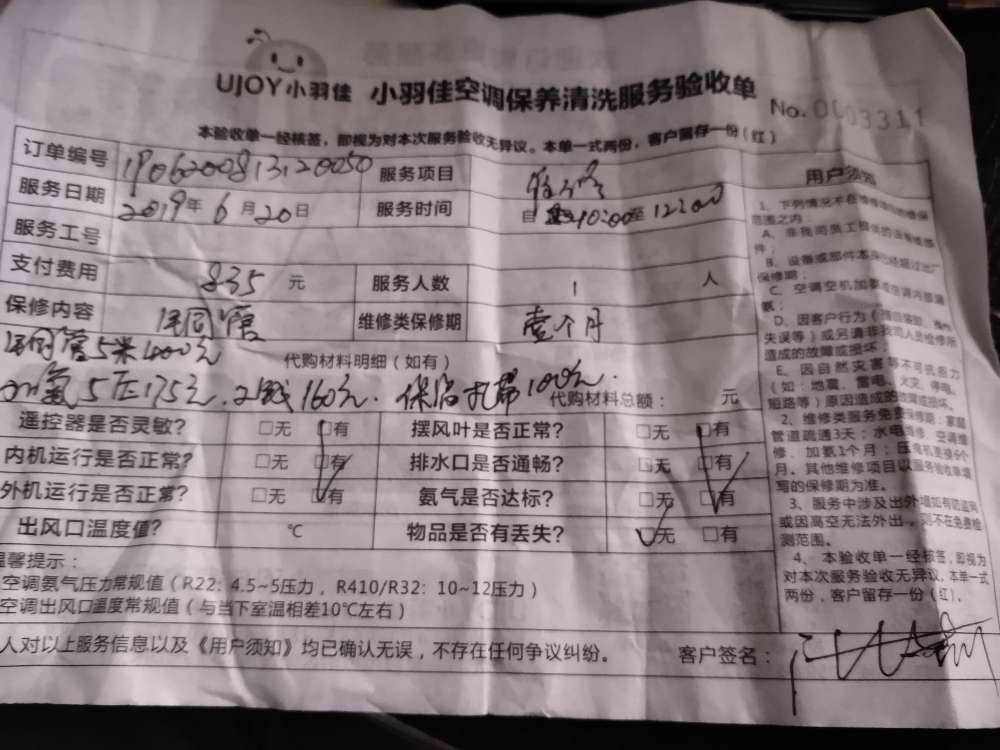 UJOY小羽佳 小羽佳空调保养清洗服务验收单
No. 0003311
本验收单一经核签，即视为对本次服务验收无异议。本单一式两份，客户留存一份（红）
订单编号 1906200813120050 服务项目
服务日期 2019年6月20日 服务时间 自 10:00至 12:00
服务工号
支付费用 835 元 服务人数 1 人
保修内容 铜管 维修类保修期 壹个月
铜管5米400元 代购材料明细（如有）
加氨5压175元. 2线160元. 保温扎带100元. 代购材料总额： 元
遥控器是否灵敏? □无 □有 摆风叶是否正常? □无 □有
内机运行是否正常? □无 □有 排水口是否通畅? □无 □有
外机运行是否正常? □无 □有 氨气是否达标? □无 □有
出风口温度值? ℃ 物品是否有丢失? □无 □有
温馨提示：
空调氨气压力常规值（R22：4.5~5压力，R410/R32：10~12压力）
空调出风口温度常规值（与当下室温相差10℃左右）
人对以上服务信息以及《用户须知》均已确认无误，不存在任何争议纠纷。 客户签名：
用户须知
1、下列情况不在
范围之内：
A、非我司员工提供的
件；
B、设备或部件本身已经超过出厂
保修期；
C、空调空机加氨或空调内部漏
氨；
D、因客户行为（
失误等）或另请非我司人员检修所
造成的故障或损坏；
E、因自然灾害等不可抗拒力
（如：地震、雷电、火灾、停电、
短路等）原因造成的故障或损坏。
2、维修类服务免费保修期：家庭
管道疏通3天；水电维修、空调维
修、加氨1个月；压缩机更换6个
月。其他维修项目以服务验收单填
写的保修期为准。
3、服务中涉及出外墙如有防盗网
或因高空无法外出，则不在免费检
测范围。
4、本验收单一经核签，即视为
对本次服务验收无异议，本单一式
两份，客户留存一份（红）。